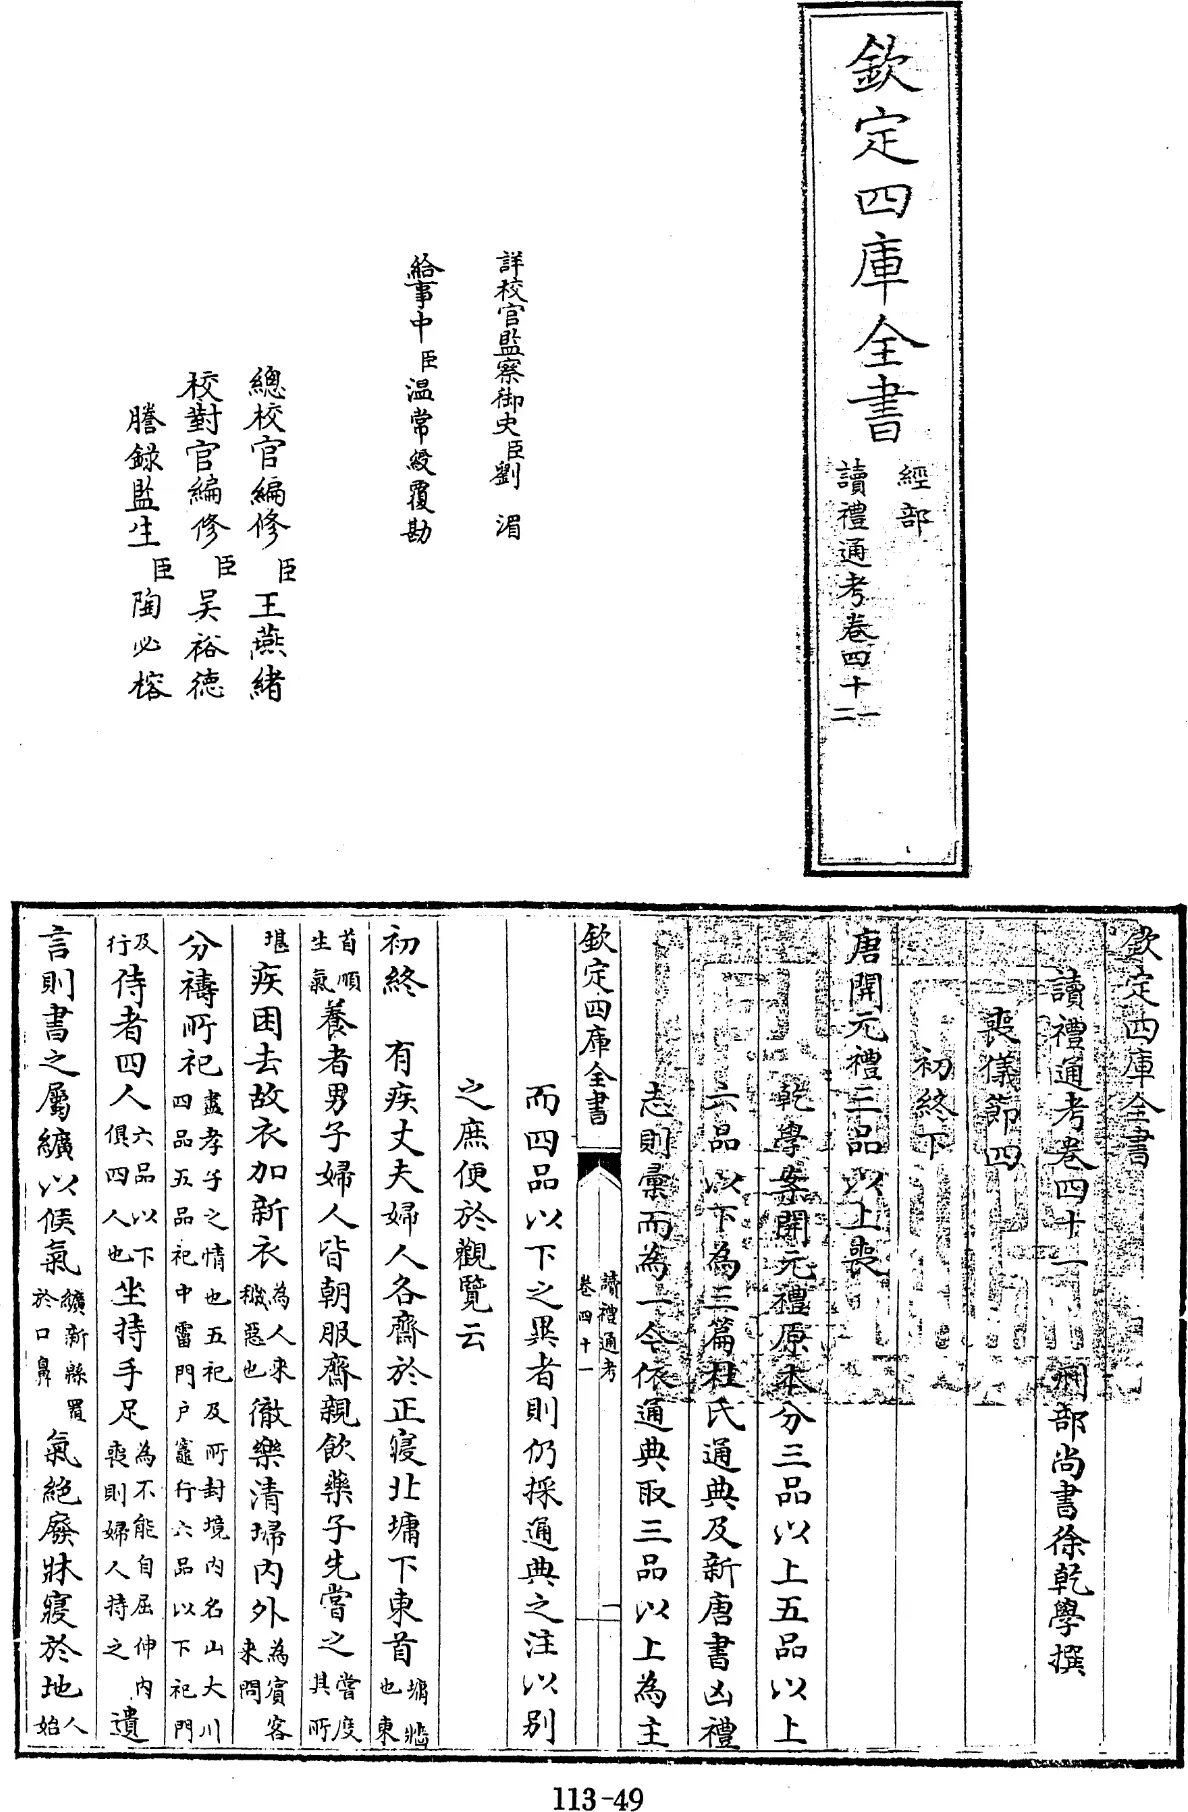 欽定四庫全書
經部
讀禮通考卷四十一二
詳校官監察御史臣劉湄
給事中臣溫常綬覆勘
總校官編修臣王燕緒
校對官編修臣吴裕德
謄錄監生臣陶必榕
欽定四庫全書
讀禮通考卷四十一 刑部尚書徐乾學撰
喪儀節四
初終下
唐開元禮三品以上喪
乾學案開元禮原本分三品以上五品以上
六品以下為三篇杜氏通典及新唐書凶禮
志則彙而為一今依通典取三品以上為主
欽定四庫全書
讀禮通考
卷四十一
一
而四品以下之異者則仍採通典之注以别
之庶便於觀覽云
初終 有疾丈夫婦人各齋於正寢北墉下東首墉牆也東
首順生氣養者男子婦人皆朝服齋親飲藥子先嘗之嘗度其所
堪疾困去故衣加新衣為人來穢惡也徹樂清埽內外為賓客來問
分禱所祀盡孝子之情也五祀及所封境內名山大川四品五品祀中霤門户竈行六品以下祀門
及行侍者四人六品以下俱四人也坐持手足為不能自屈伸內喪則婦人持之遺
言則書之屬纊以候氣纊新緜置於口鼻氣絶廢牀寢於地人始
113-49